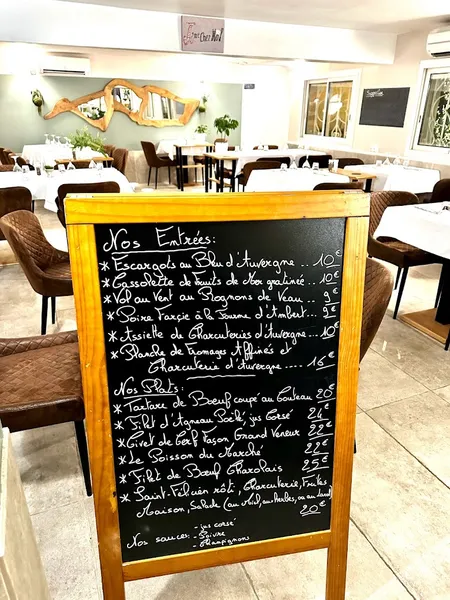 Chez Mal
Nos Entrées:
* Escargots au Bleu d'Auvergne... 10€
* Cassolette de Fruits de Mer gratinée... 10€
* Vol au Vent au Rognons de Veau... 9€
* Poire Farçie à la Fourme d'Ambert... 9€
* Assiette de Charcuteries d'Auvergne... 10€
* Planche de Fromages Affinés et
Charcuterie d'Auvergne ---- 16€
Nos Plats:
* Tartare de Bœuf coupé au Couteau 20€
* Filet d'Agneau Poêlé, jus Corsé 24€
* Civet de Cerf Façon Grand Veneur 22€
* Le Poisson du Marché 22€
* Filet de Bœuf Charolais 25€
* Saint-Félicien rôti, Charcuterie, Frites
Maison, Salade (au Miel, aux herbes, ou au Lard)
20€
Nos sauces: - jus corsé
- Poivre
- Champignons